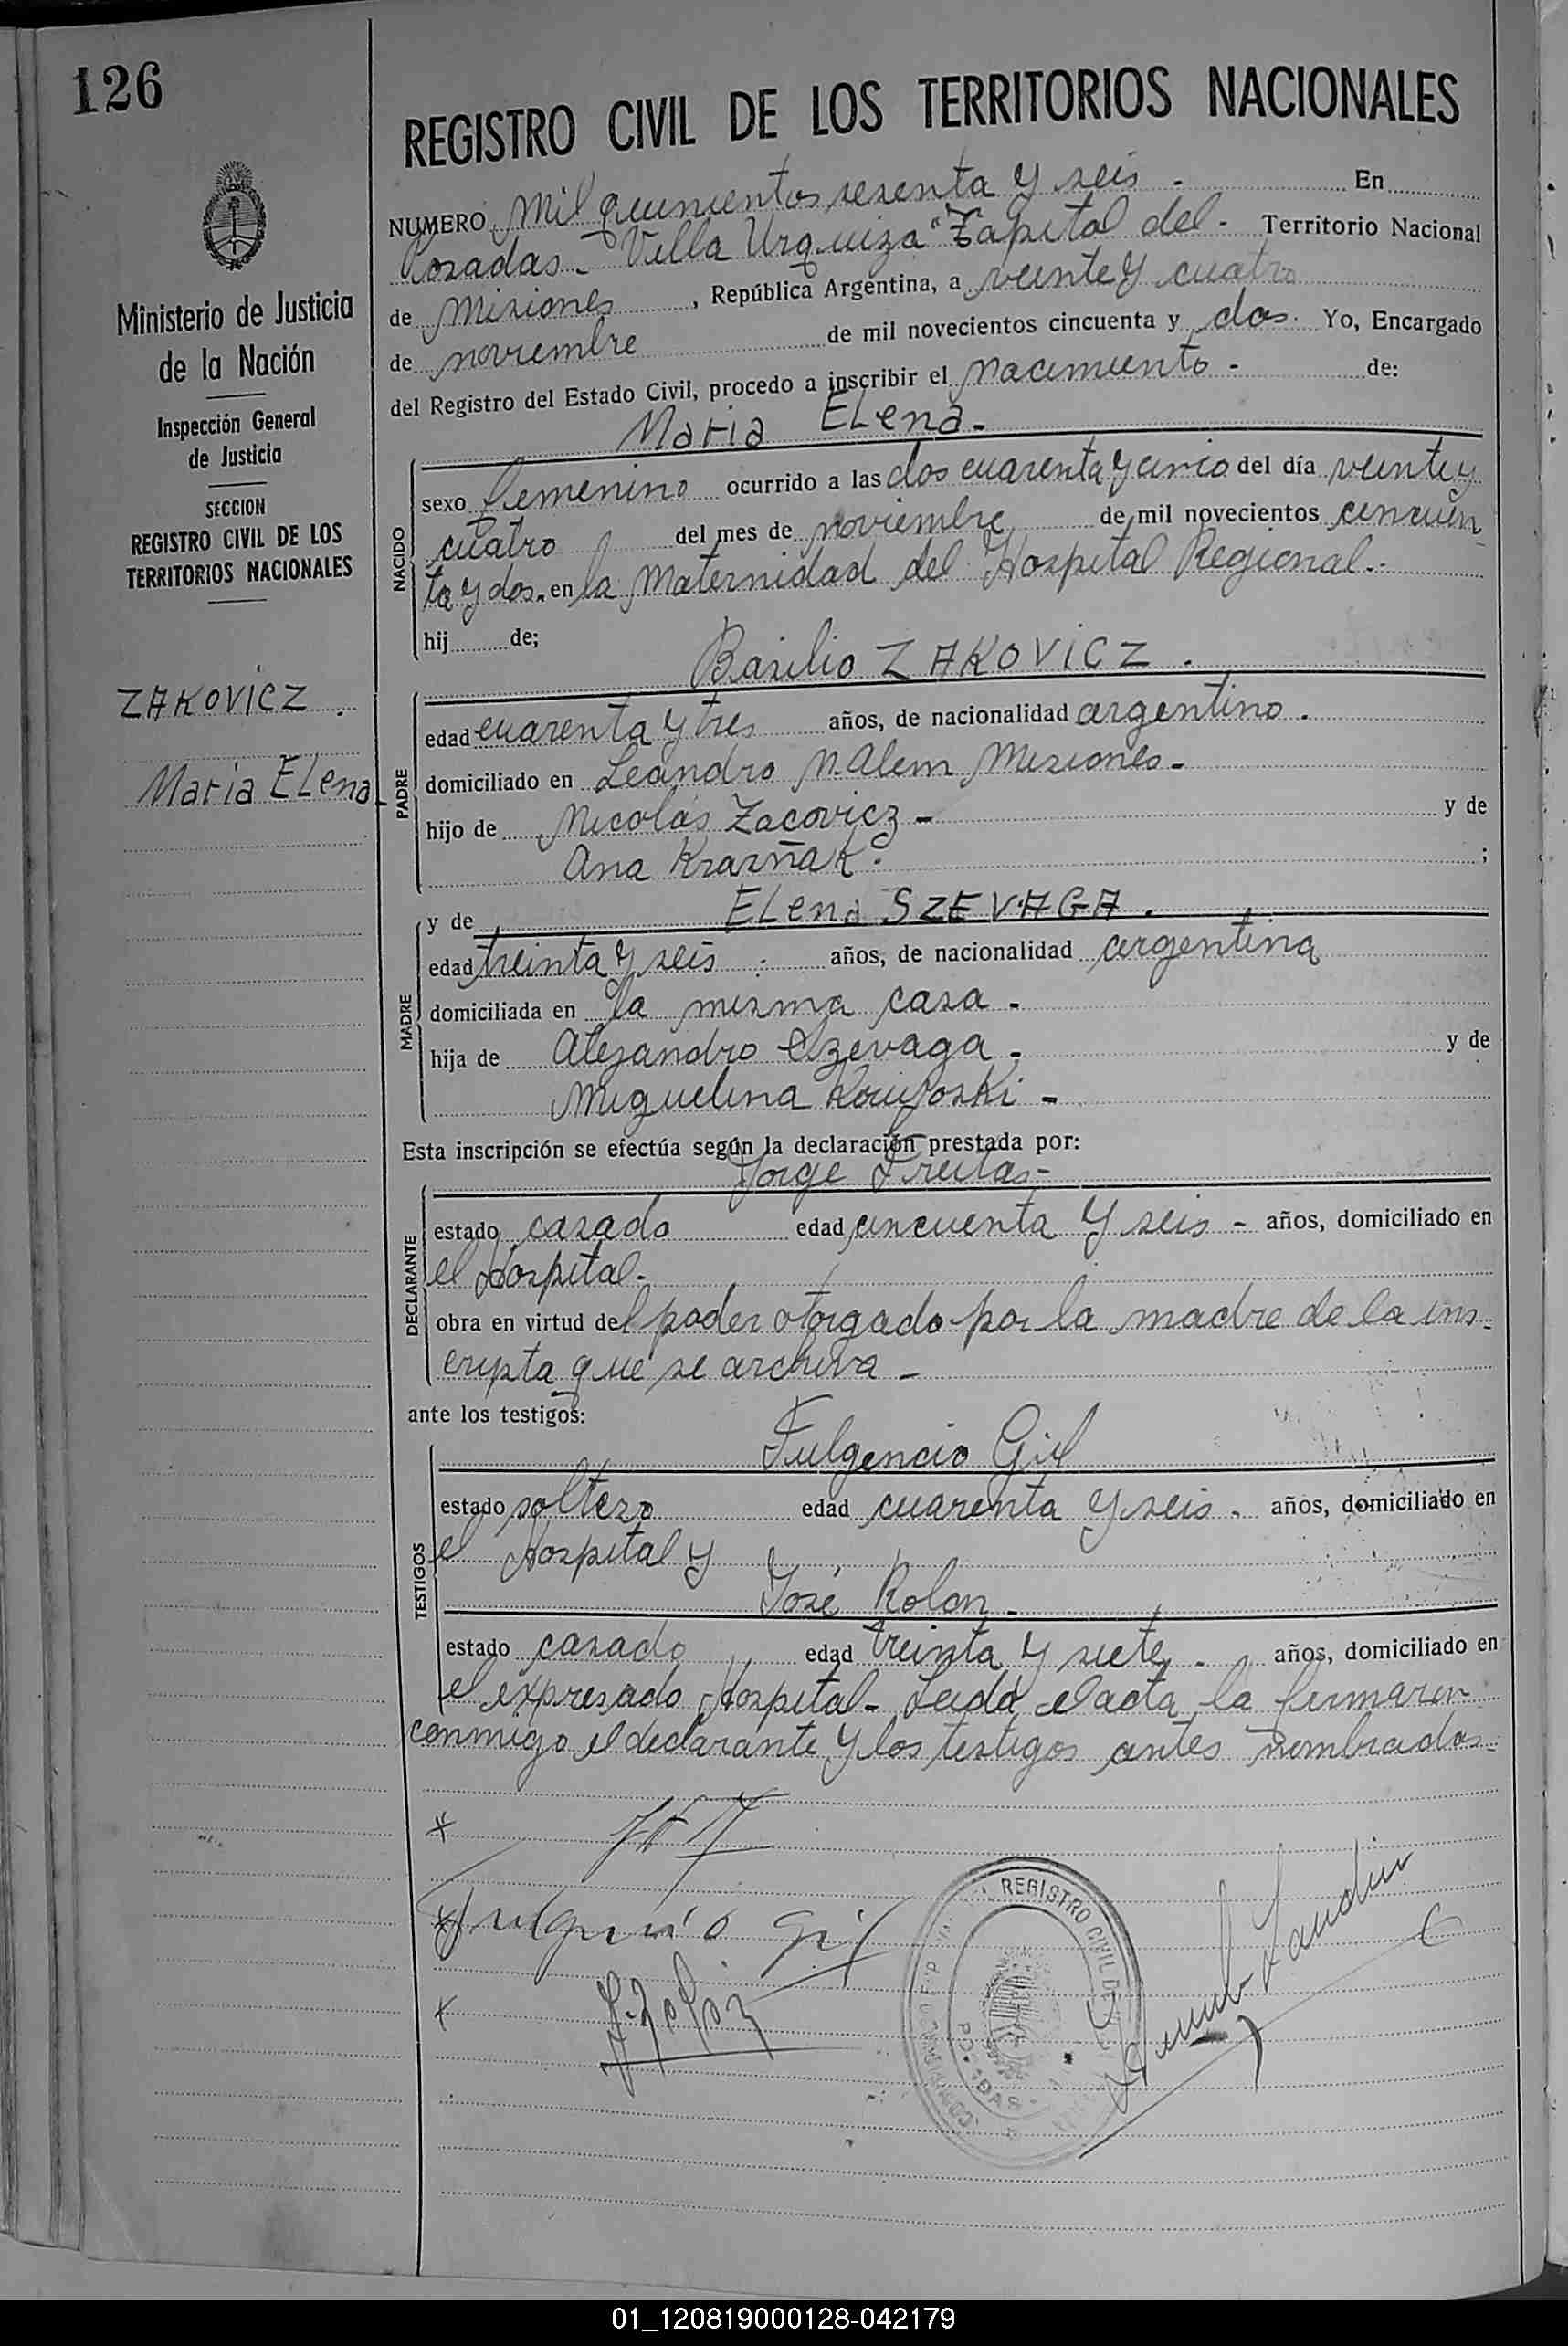 126
Ministerio de Justicia
de la Nación
Inspección General
de Justicia
SECCION
REGISTRO CIVIL DE LOS
TERRITORIOS NACIONALES
ZAKOVICZ.
Maria ELena
REGISTRO CIVIL DE LOS TERRITORIOS NACIONALES
NUMERO Mil quinientos sesenta y seis - En
Posadas - Villa Urquiza "Capital del - Territorio Nacional
de Misiones, República Argentina, a veinte y cuatro
de noviembre de mil novecientos cincuenta y dos. Yo, Encargado
del Registro del Estado Civil, procedo a inscribir el nacimiento - de:
Maria ELena -
NACIDO
sexo femenino ocurrido a las dos cuarenta y cinco del día veinte y
cuatro del mes de noviembre de mil novecientos cincuen
ta y dos. en la Maternidad del Hospital Regional.-
hij de;
Basilio ZAKOVICZ.
PADRE
edad cuarenta y tres años, de nacionalidad argentino.
domiciliado en Leandro N. Alem Misiones -
hijo de Nicolás Zacovicz - y de
Ana Krasñak. ;
y de ELena SZEVAGA.
MADRE
edad treinta y seis. años, de nacionalidad argentina
domiciliada en la misma casa -
hija de Alejandro Szevaga - y de
Miguelina -
Esta inscripción se efectúa según la declaración prestada por:
Jorge Freitas -
DECLARANTE
estado casado edad cincuenta y seis - años, domiciliado en
el Hospital -
obra en virtud del poder otorgado por la madre de la ins-
cripta que se archiva -
ante los testigos:
Fulgencio Gil
TESTIGOS
estado soltero edad cuarenta y seis - años, domiciliado en
el Hospital y
José Rolon -
estado casado edad treinta y siete - años, domiciliado en
el expresado Hospital - Leida el acta la firmaron
conmigo el declarante y los testigos antes nombrados -
Fulgencio Gil
J. Rolon
REGISTRO CIVIL DE
POSADAS
01_120819000128-042179